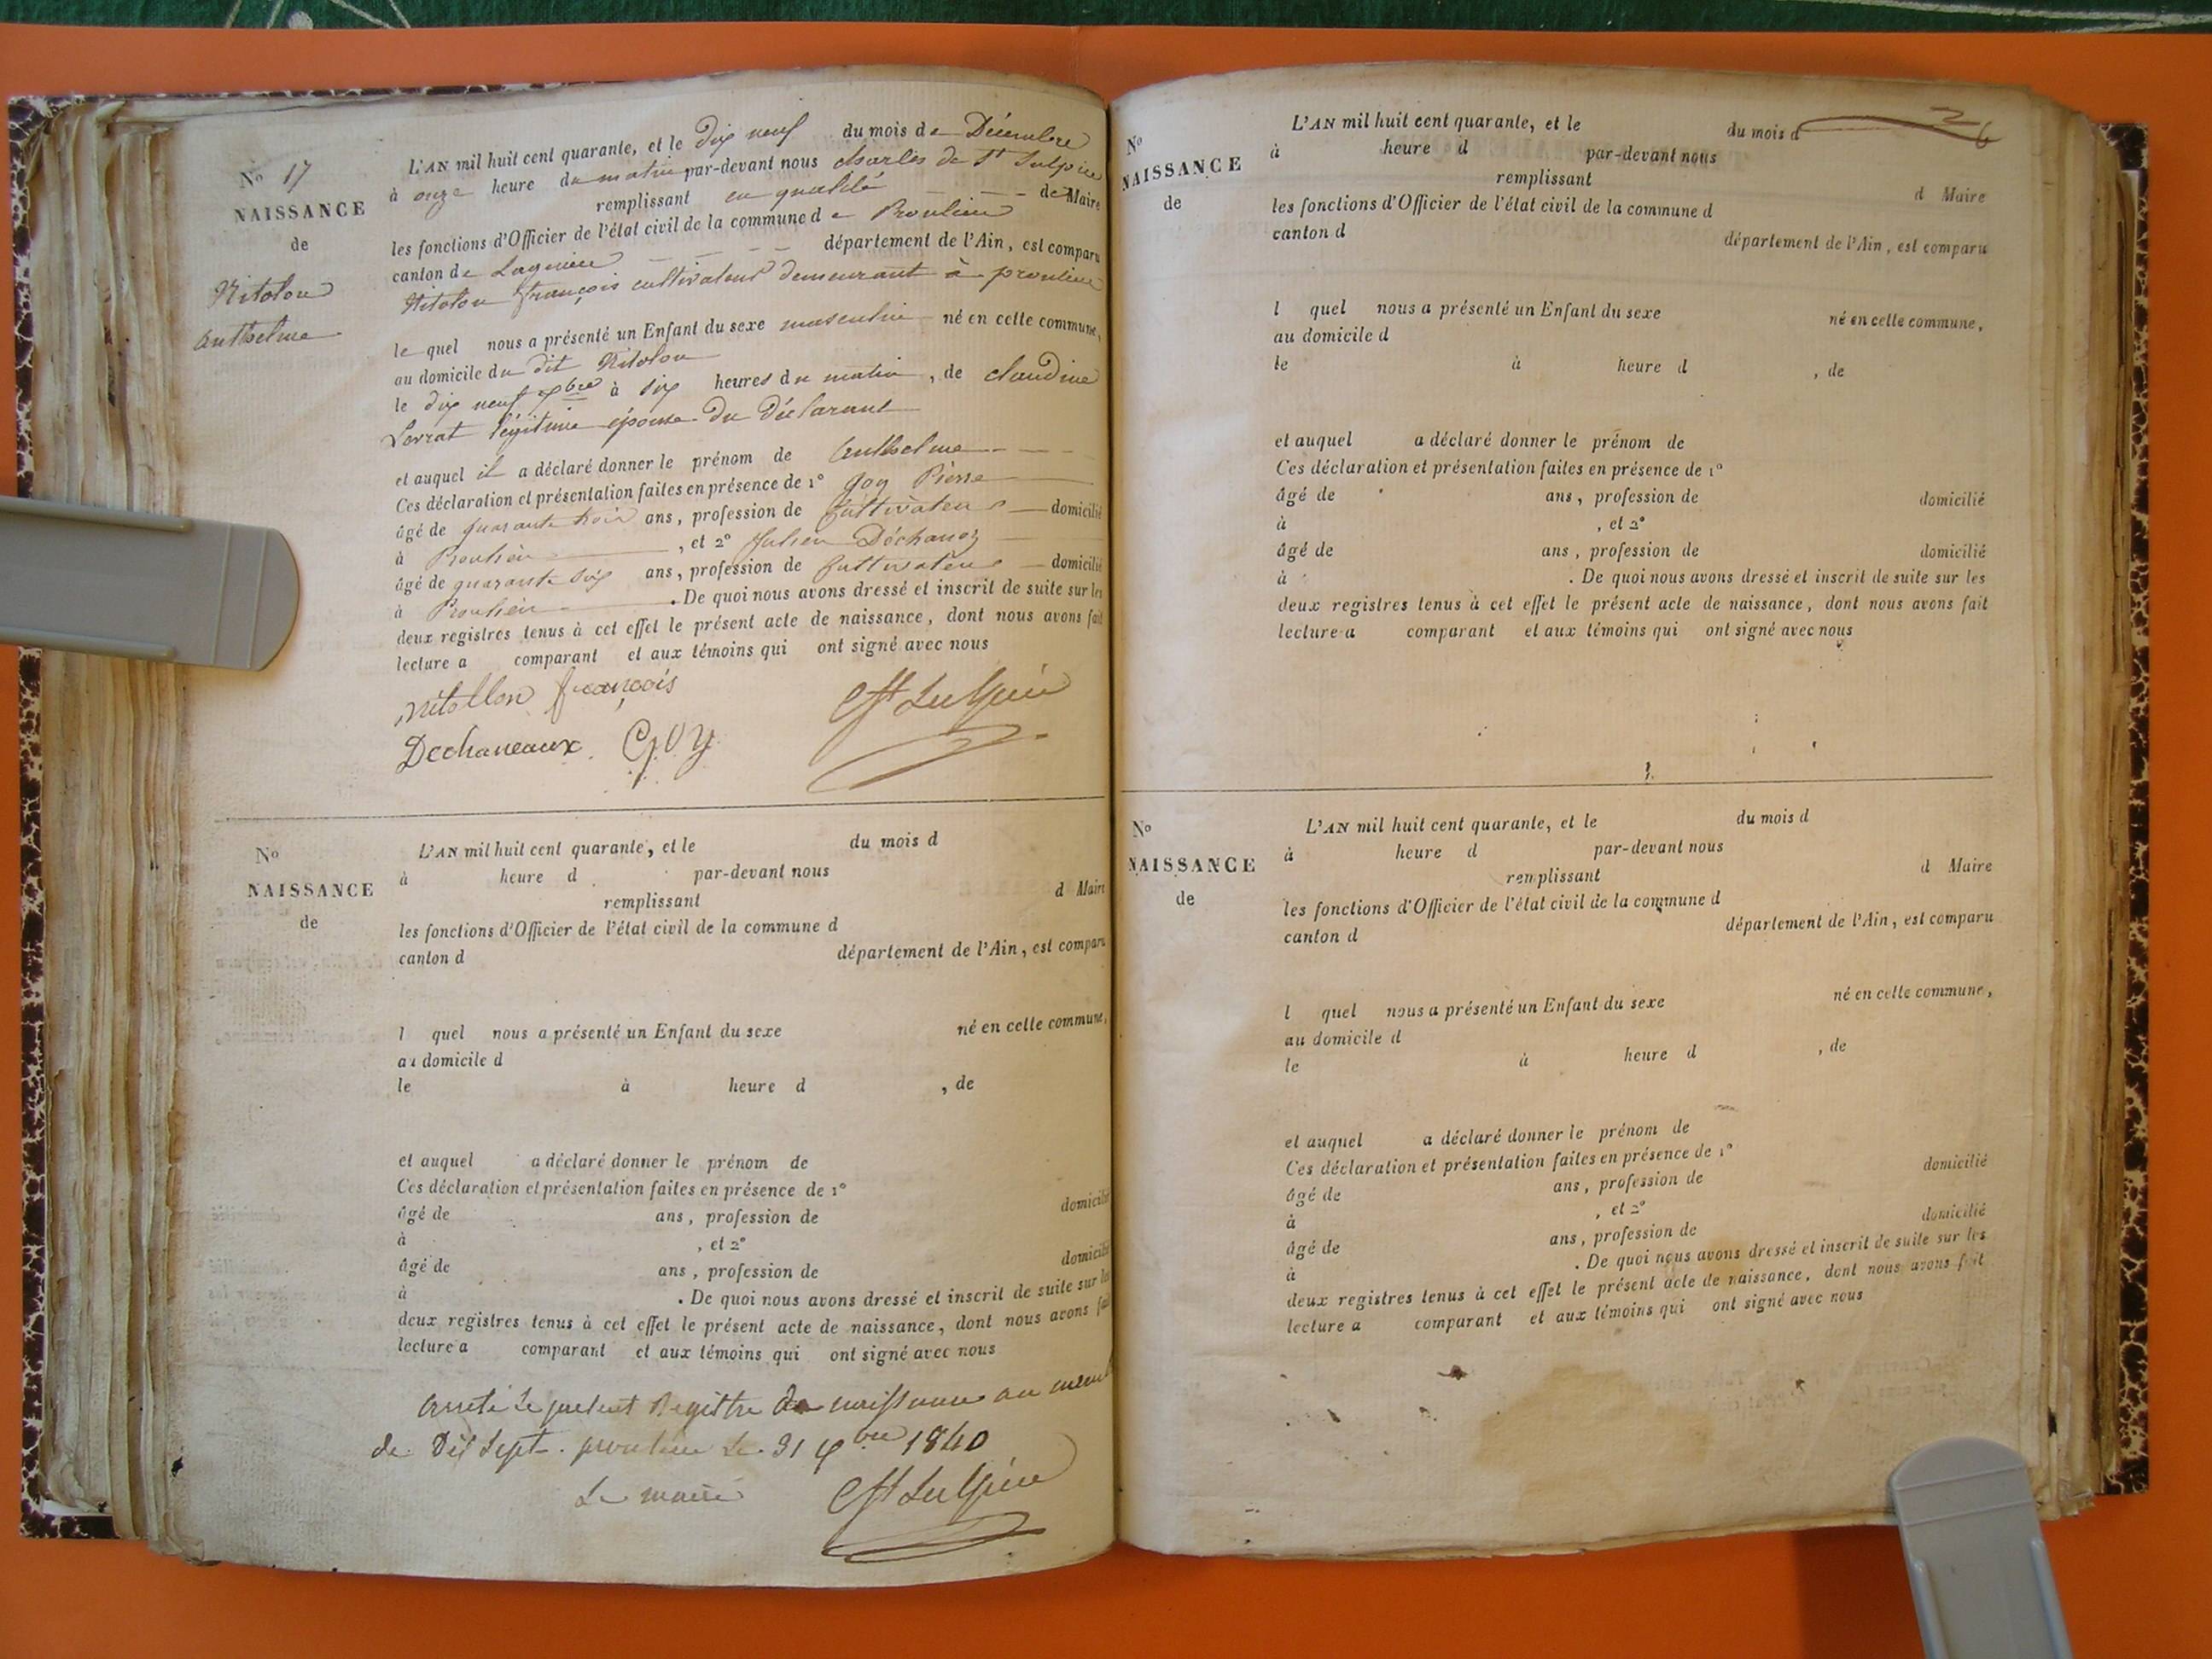 No 17
NAISSANCE
de
Nitolon
Anthelme
L'AN mil huit cent quarante, et le dix neuf du mois de Décembre
à onze heure du matin par-devant nous charles de St Sulpice
remplissant en qualité de Maire
les fonctions d'Officier de l'état civil de la commune de Proulieu
canton de Lagnieu département de l'Ain, est comparu
Nitolon françois cultivateur demeurant à proulieu
le quel nous a présenté un Enfant du sexe masculin né en cette commune,
au domicile du dit Nitolon
le dix neuf Xbre à six heures du matin, de claudine
Serrat légitime épouse du Déclarant
et auquel il a déclaré donner le prénom de Anthelme
Ces déclaration et présentation faites en présence de 1° Goy Pierre
âgé de quarante trois ans, profession de Cultivateur domicilié
à Proulieu, et 2° Julien Déchanoz
âgé de quarante six ans, profession de Cultivateur domicilié
à Proulieu. De quoi nous avons dressé et inscrit de suite sur les
deux registres tenus à cet effet le présent acte de naissance, dont nous avons fait
lecture a comparant et aux témoins qui ont signé avec nous
nitollon françois
CSt Sulpice
Dechaneaux. GOY
No
NAISSANCE
de
L'AN mil huit cent quarante, et le du mois d
à heure d par-devant nous
remplissant d Maire
les fonctions d'Officier de l'état civil de la commune d
canton d département de l'Ain, est comparu
l quel nous a présenté un Enfant du sexe né en cette commune,
au domicile d
le à heure d , de
et auquel a déclaré donner le prénom de
Ces déclaration et présentation faites en présence de 1°
âgé de ans, profession de domicilié
à , et 2°
âgé de ans, profession de domicilié
à . De quoi nous avons dressé et inscrit de suite sur les
deux registres tenus à cet effet le présent acte de naissance, dont nous avons fait
lecture a comparant et aux témoins qui ont signé avec nous
Arreté le present Registre de naissance au
de Dix Sept. proulieu le 31 Xbre 1840
Le maire CSt Sulpice
26
No
NAISSANCE
de
L'AN mil huit cent quarante, et le du mois d
à heure d par-devant nous
remplissant d Maire
les fonctions d'Officier de l'état civil de la commune d
canton d département de l'Ain, est comparu
l quel nous a présenté un Enfant du sexe né en cette commune,
au domicile d
le à heure d , de
et auquel a déclaré donner le prénom de
Ces déclaration et présentation faites en présence de 1°
âgé de ans, profession de domicilié
à , et 2°
âgé de ans, profession de domicilié
à . De quoi nous avons dressé et inscrit de suite sur les
deux registres tenus à cet effet le présent acte de naissance, dont nous avons fait
lecture a comparant et aux témoins qui ont signé avec nous
No
NAISSANCE
de
L'AN mil huit cent quarante, et le du mois d
à heure d par-devant nous
remplissant d Maire
les fonctions d'Officier de l'état civil de la commune d
canton d département de l'Ain, est comparu
l quel nous a présenté un Enfant du sexe né en cette commune,
au domicile d
le à heure d , de
et auquel a déclaré donner le prénom de
Ces déclaration et présentation faites en présence de 1°
âgé de ans, profession de domicilié
à , et 2°
âgé de ans, profession de domicilié
à . De quoi nous avons dressé et inscrit de suite sur les
deux registres tenus à cet effet le présent acte de naissance, dont nous avons fait
lecture a comparant et aux témoins qui ont signé avec nous